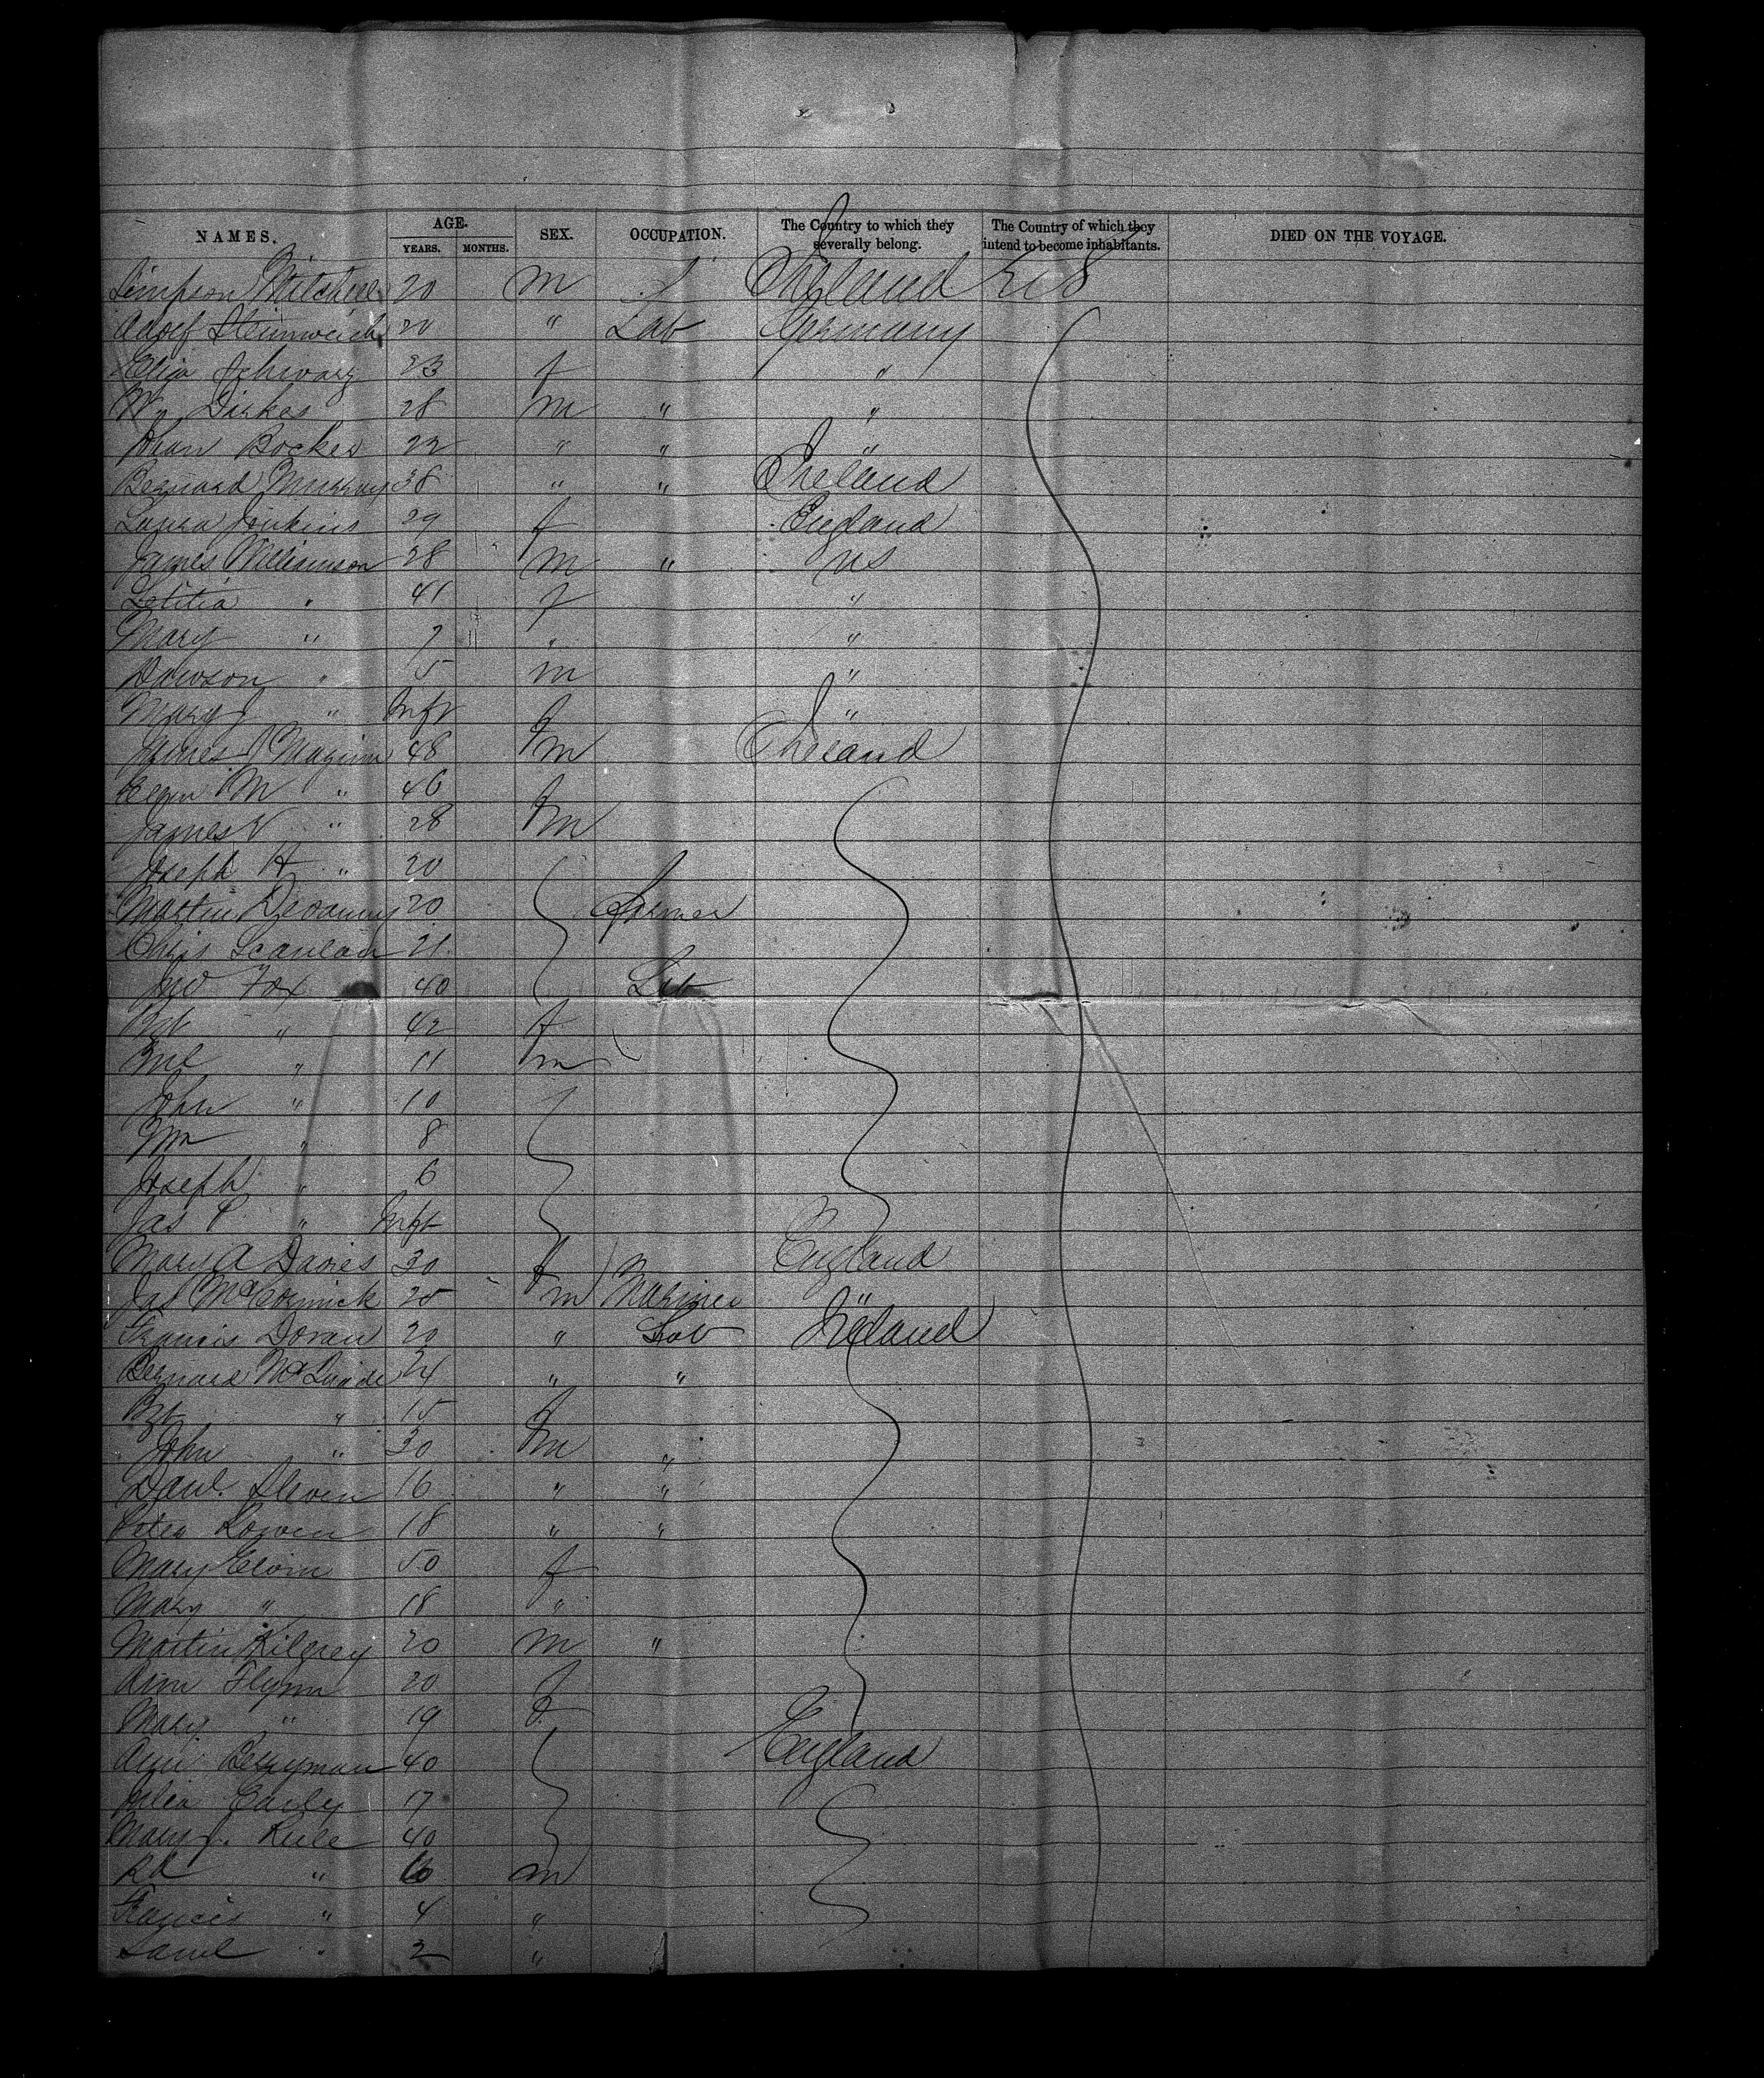 NAMES. AGE. YEARS. MONTHS. SEX. OCCUPATION. The Country to which they severally belong. The Country of which they intend to become inhabitants. DIED ON THE VOYAGE.
Simpson Mitchell 20 m Ireland U S
Adolf 20 " Lab Germany
Eliza Schwarz 23 f "
Wm Dirkes 28 m " "
Johan Bockes 22 " " "
Bernard Murray 38 " " Ireland
Laura Jenkins 29 f England
James Williamson 28 m " US
Letitia " 41 f "
Mary " 7 " "
Dawson " 5 m "
Mary J " Inft "
James Maginn 48 m Ireland
Ellen M " 46 f
James V " 28 m
Joseph H " 20
Martin 20 Farmer
Chris Scanlan 21
Jno Fox 40 Lab
Bgt " 42 f
Ml " 11 m
John " 10
Wm " 8
Joseph " 6
Jas P " Inft
Mary A Davies 30 f England
Jas McCormick 25 m Mariner "
Francis Doran 20 " Lab Ireland
Bernard McQuade 24 " "
Bgt " 15 f
John " 30 m "
Danl. Slevin 16 " "
Peter 18 " "
Mary 50 f
Mary " 18 "
Martin Kilgrey 20 m "
Ann Flynn 20 f
Mary " 19 f
Ann Berryman 40 England
Julia Early 17
Mary J. Rule 40
Rd " 6 m
Francis " 4 "
Saml " 2 "